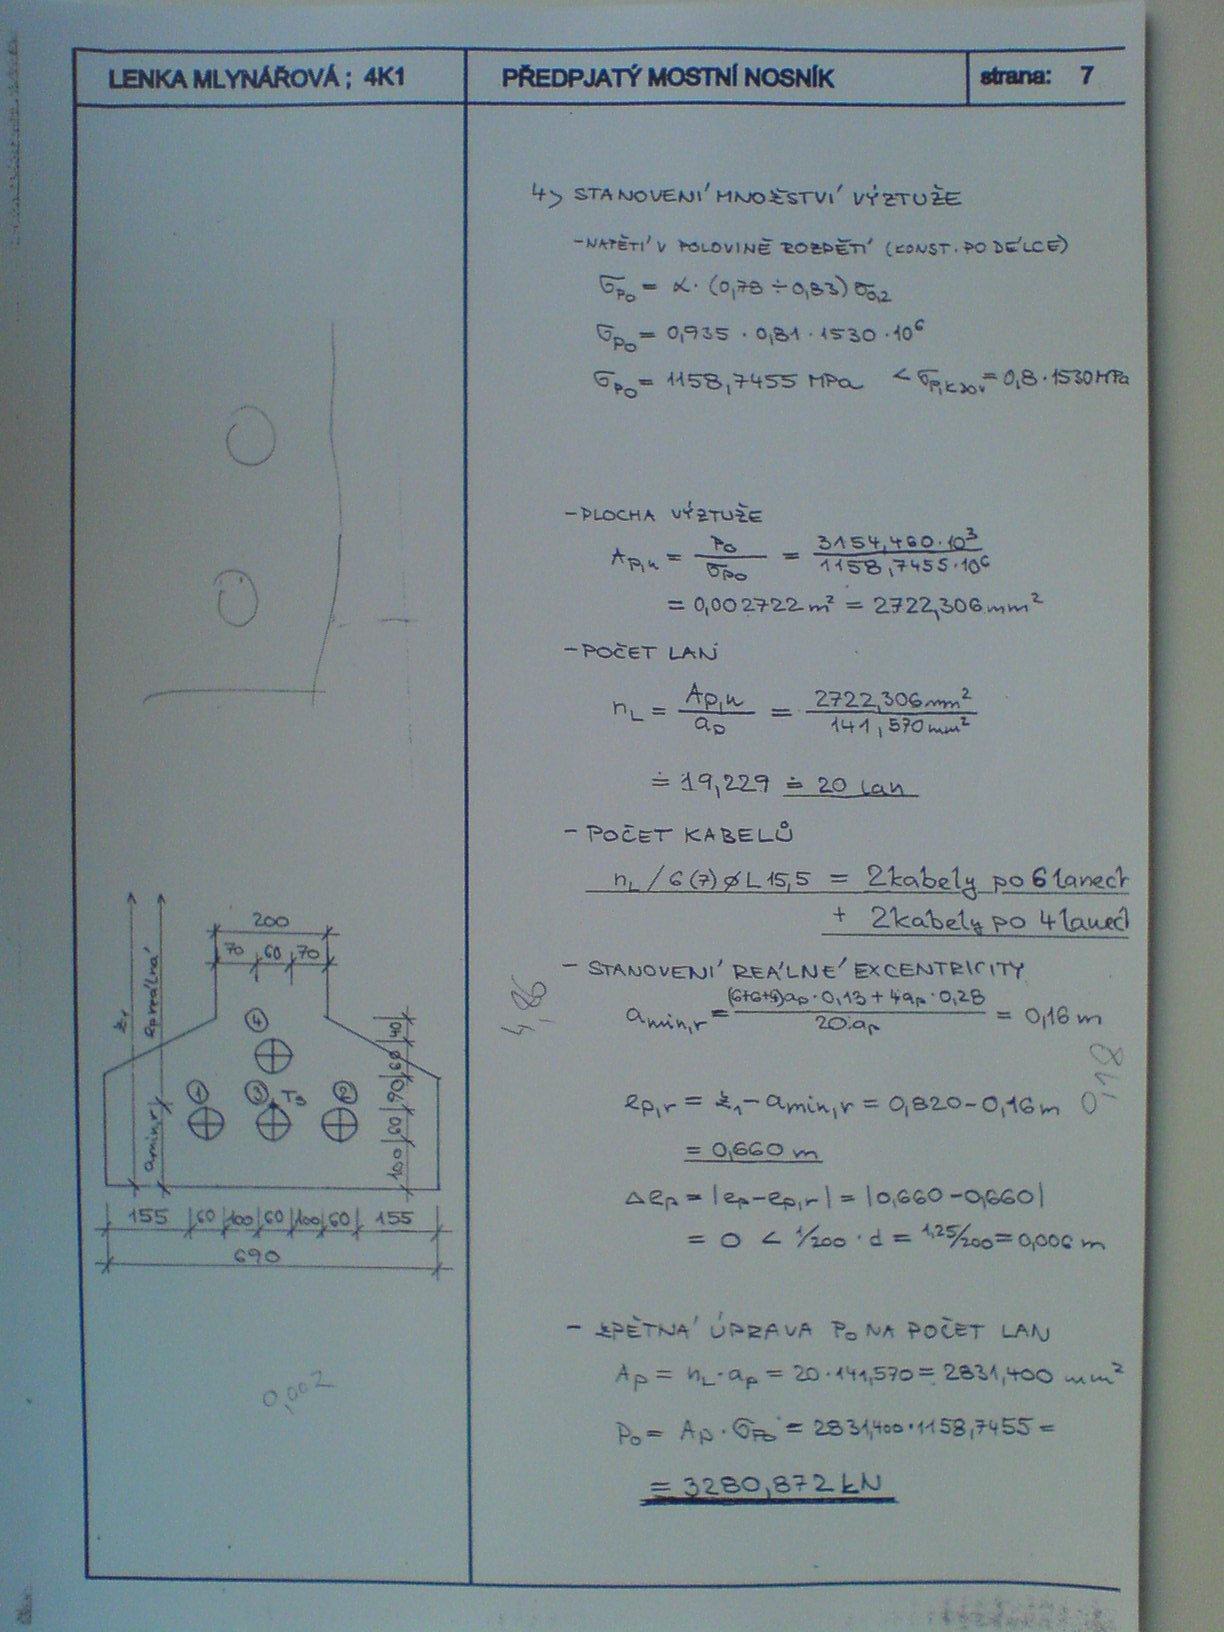 LENKA MLYNÁŘOVÁ ; 4K1
PŘEDPJATÝ MOSTNÍ NOSNÍK
strana: 7
4) STANOVENÍ MNOŽSTVÍ VÝZTUŽE
- NAPĚTÍ V POLOVINĚ ROZPĚTÍ (KONST. PO DÉLCE)
σp0 = α · (0,78 ÷ 0,83) σ0,2
σp0 = 0,935 · 0,81 · 1530 · 10⁶
σp0 = 1158,7455 MPa < σp,k dov = 0,8 · 1530 MPa
- PLOCHA VÝZTUŽE
Ap,n = P0 / σp0 = 3154,460 · 10³ / 1158,7455 · 10⁶
= 0,002722 m² = 2722,306 mm²
- POČET LAN
nL = Ap,n / ap = 2722,306 mm² / 141,570 mm²
≐ 19,229 ≐ 20 lan
- POČET KABELŮ
nL / 6 (7) ø L 15,5 = 2 kabely po 6 lanech
+ 2 kabely po 4 lanech
- STANOVENÍ REÁLNÉ EXCENTRICITY
amin,r = (6+6+4) ap · 0,13 + 4 ap · 0,28 / 20 · ap = 0,16 m
4,86
0,18
ep,r = z1 - amin,r = 0,820 - 0,16 m
= 0,660 m
Δep = |ep - ep,r| = |0,660 - 0,660|
= 0 < 1/200 · d = 1,25/200 = 0,006 m
- ZPĚTNÁ ÚPRAVA P0 NA POČET LAN
Ap = nL · ap = 20 · 141,570 = 2831,400 mm²
P0 = Ap · σp0 = 2831,400 · 1158,7455 =
= 3280,872 kN
200
70 60 70
z1
ep reálná
amin,r
4
1 3 Tb 2
40
60
90
60
100
155 60 100 60 100 60 155
690
0,002